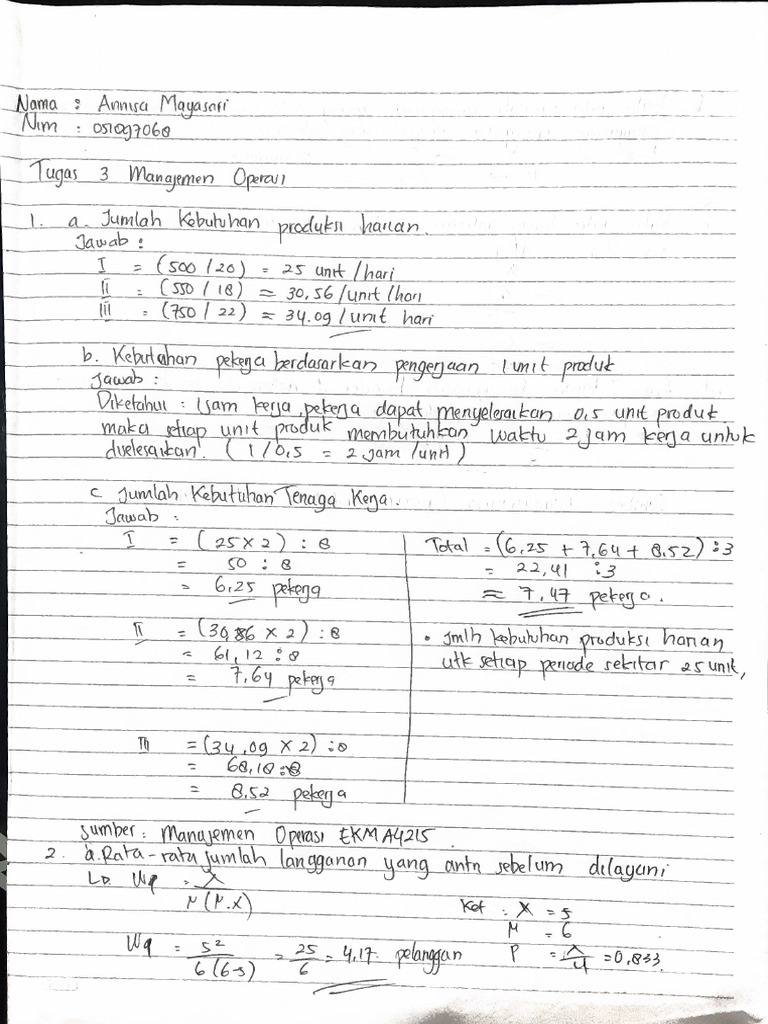 Nama : Annisa Mayasari
Nim : 051097068
Tugas 3 Manajemen Operasi
1. a. Jumlah Kebutuhan produksi harian.
Jawab :
I = (500 / 20) = 25 unit /hari
II = (550 / 18) ≈ 30,56 /unit /hari
III = (750 / 22) ≈ 34.09 /unit hari
b. Kebutuhan pekerja berdasarkan pengerjaan 1 unit produk
Jawab :
Diketahui : 1 jam kerja, pekerja dapat menyelesaikan 0,5 unit produk
maka setiap unit produk membutuhkan waktu 2 jam kerja untuk
diselesaikan. ( 1 / 0,5 = 2 jam /unit )
c Jumlah Kebutuhan Tenaga Kerja.
Jawab :
I = ( 25 x 2 ) : 8
= 50 : 8
= 6,25 pekerja
II = (30,56 x 2) : 8
= 61,12 : 8
= 7,64 pekerja
III = (34,09 x 2) : 8
= 68,18 : 8
= 8,52 pekerja
Total = (6,25 + 7,64 + 8,52) : 3
= 22,41 : 3
≈ 7,47 pekerja.
• Jmlh kebutuhan produksi harian
utk setiap periode sekitar 25 unit,
Sumber : Manajemen Operasi EKMA4215
2. a. Rata-rata jumlah langganan yang antri sebelum dilayani
Lp. Wq = λ
μ(μ.x)
Wq = 5² = 25 = 4,17 pelanggan
6 (6-5) 6
Ket : X = 5
μ = 6
P = λ = 0,833
μ